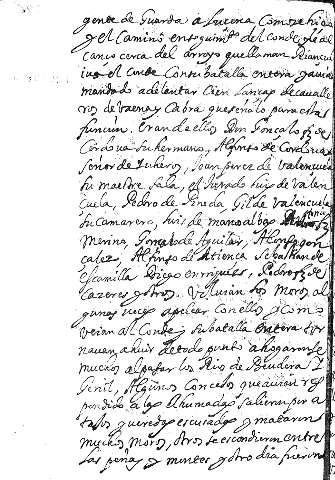 gente de Guarda a Lucena Como se hiço
y el Camino en seguimto del conde que al
canço cerca del arroyo que llaman Riancu
el Conde Con su batalla entera y auia
mandado adelantar Cien Lanças de cavalle
ros de vaena y Cabra que señalo para esta
funcion. Eran de ellos Don Gonçalo fz de
Cordova su hermano, Alfonso de Cordova
señor de Zuheros, Joan perez de valençuela
su maestre Sala, el Jurado luis de valen
çuela, Pedro de Pineda Gil de Valençuela
su Camarero, luis de
Merina, Gonçalo de Aguilar, Alonso gon
calez, Alfonso de Atiença Sebastian de
escamilla Diego enrriquez, Pedro fz de
Cazeres y otros. Voluian los Moros al
gunas veces a pelear con ellos y Como
veian al Conde y su batalla entera tor
nauan a huir de todo punto ahogaronse
muchos al pasar los Rio de Bendera y
Genil, Algunos Concejos que auian res
pondido a las Ahumadas salieron por a
tajos y veredas escusadas y mataron
muchos Moros, otros se escondieron entre
las peñas y montes y otro dia fueron